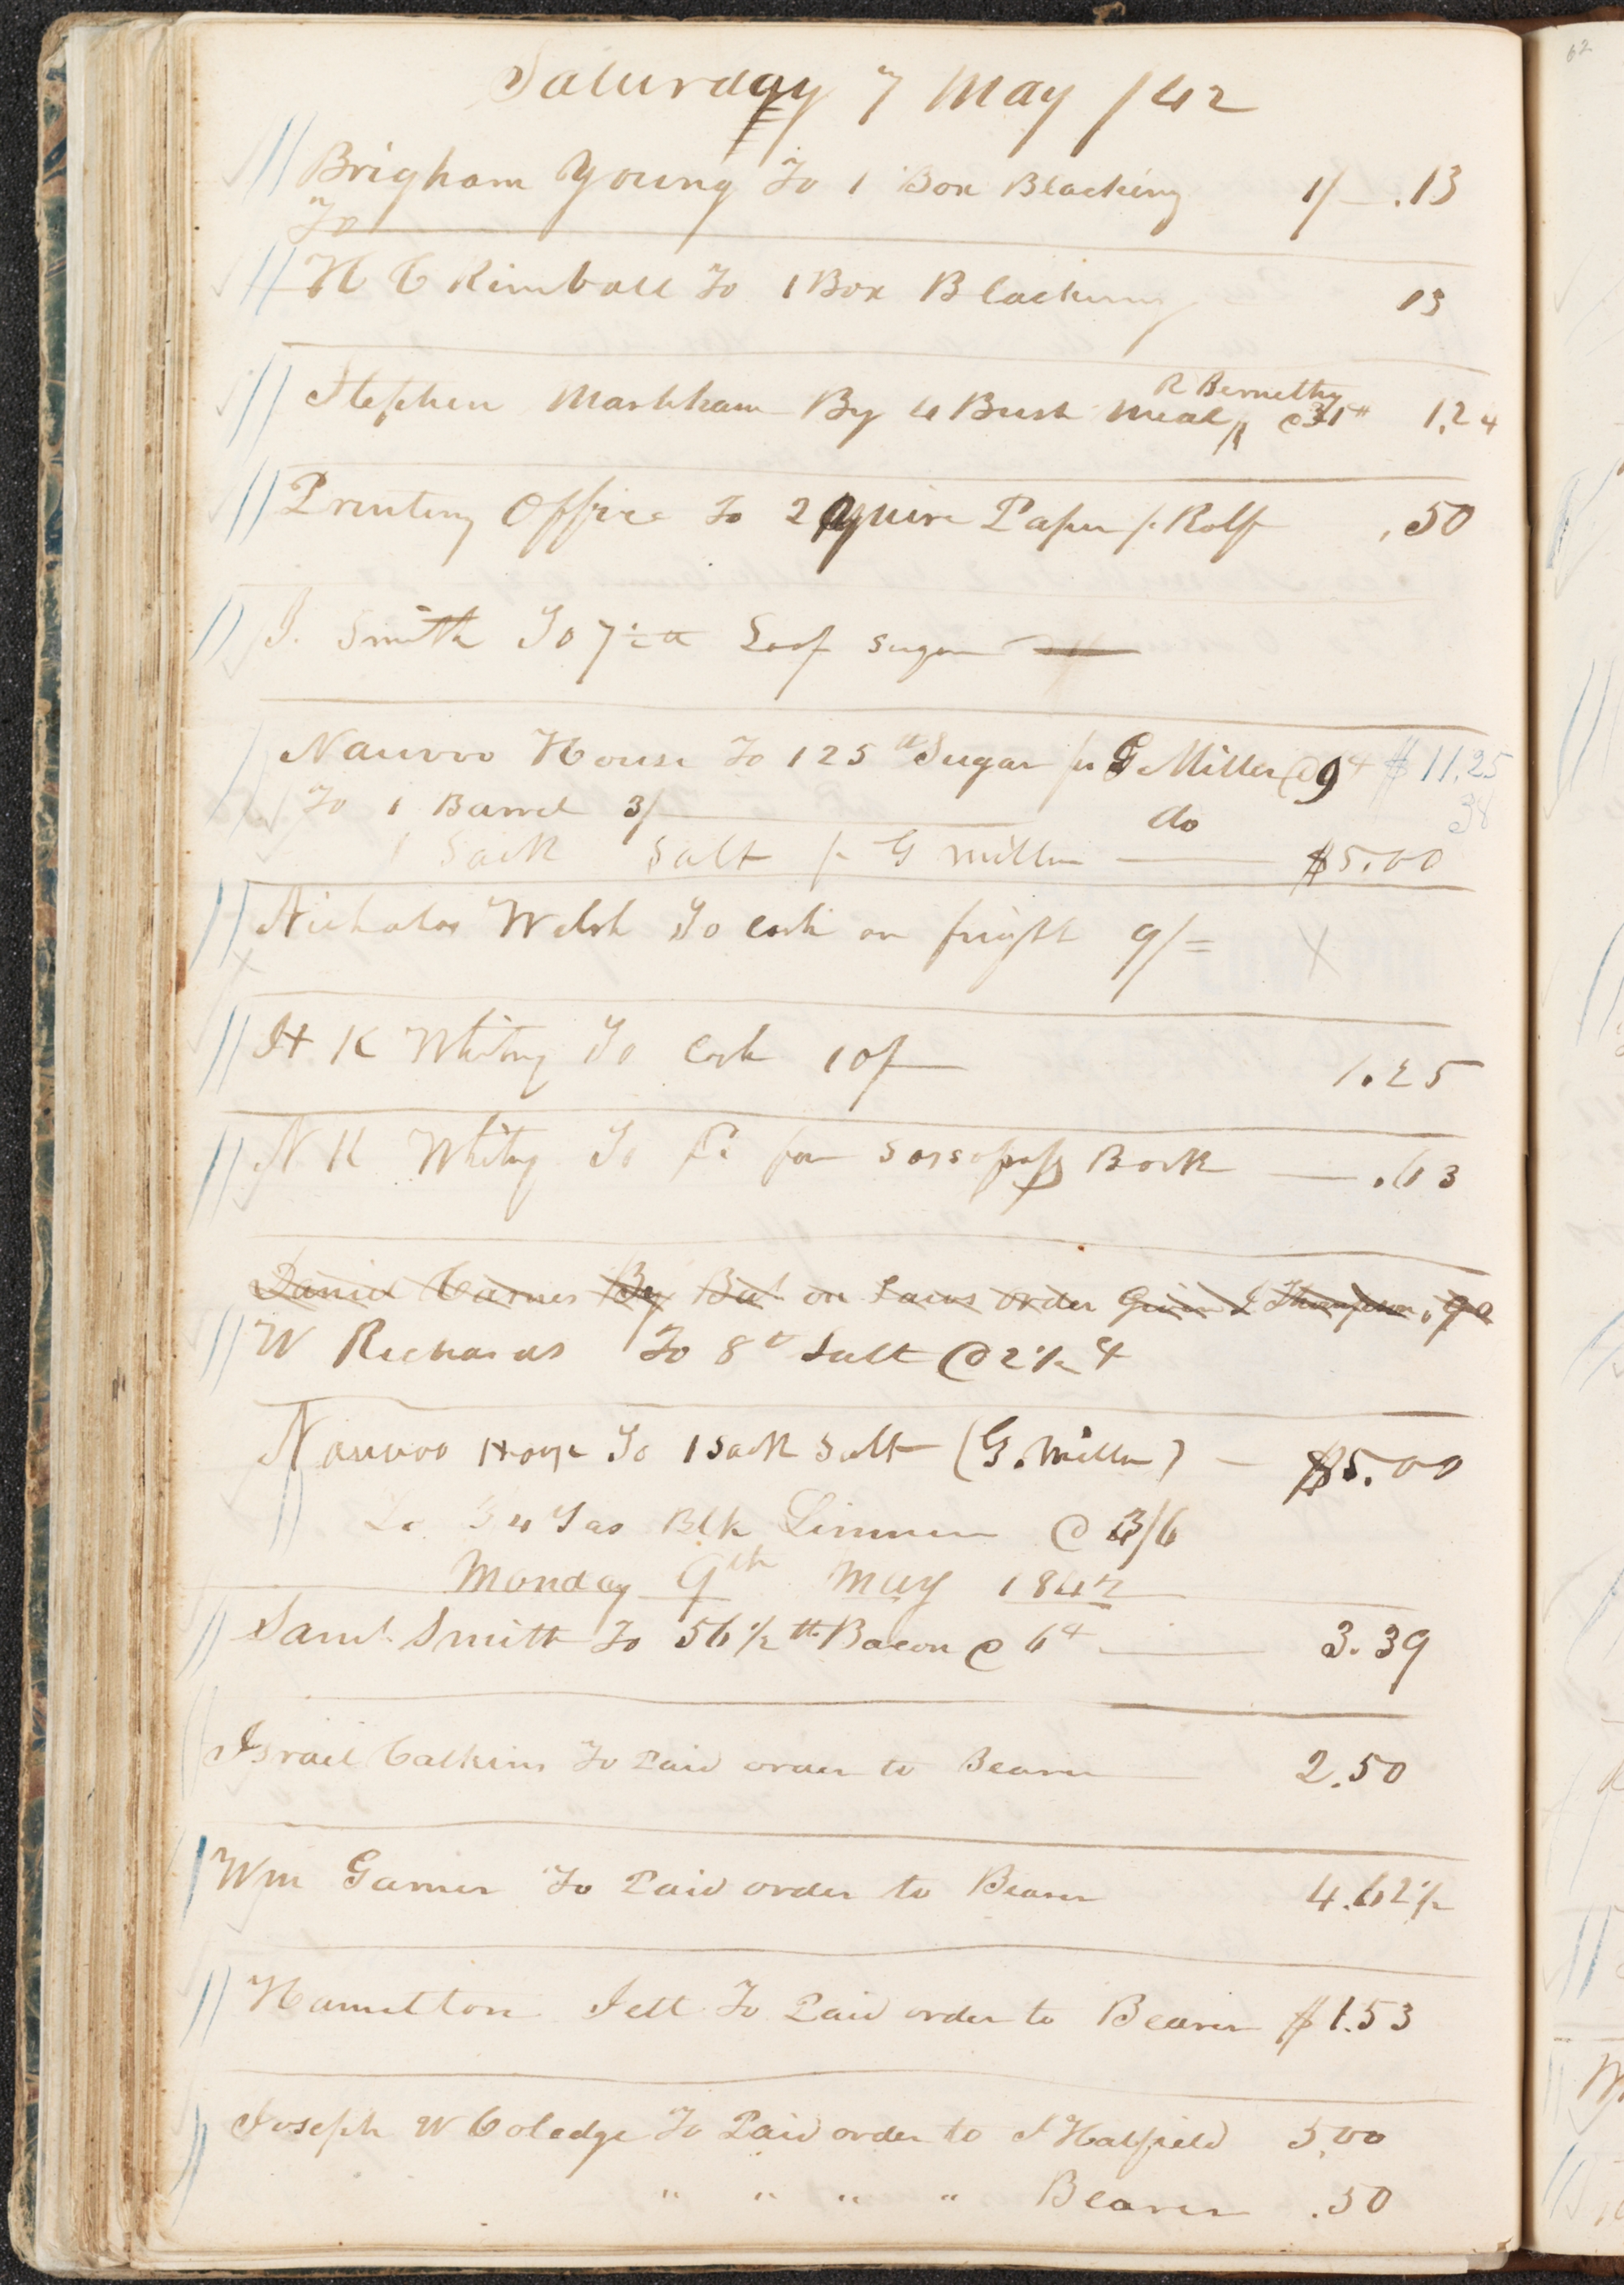 Saturday 7 May /42
Brigham Young To 1 Box Blacking 1/ .13
To
H C Kimball To 1 Box Blacking 13
R Bernethy
Stephen Markham By 4 Bush meal @31 1.24
Printing Office To 2 quire Paper pr Rolf .50
J. Smith To 7 1/2 lb Loaf sugar
Nauvoo House To 125 lb Sugar pr G Miller @9 $11.25
To 1 Barrel 3/ do 38
1 Sack Salt pr G Miller $5.00
Nicholas Welsh To cash on freight 9/=
H K Whitney To Cash 10/ 1.25
N K Whitney To for Sarsafras Bark .63
Daniel Carnes By Bal on Laws order Given J Thompson
W Richards To 8 lb Salt @ 2 1/2
Nauvoo House To 1 Sack Salt (G. Miller) $5.00
Blk @ 3/6
Monday 9th May 1842
Saml. Smith To 56 1/2 lb Bacon @ 6 3.39
Israel Calkins To Paid order to Bearer 2.50
Wm Garner To Paid order to Bearer 4.62 1/2
Hamilton Jett To Paid order to Bearer $1.53
Joseph W Coledge To Paid order to J Hatfield 5,00
" " " " Bearer .50
62